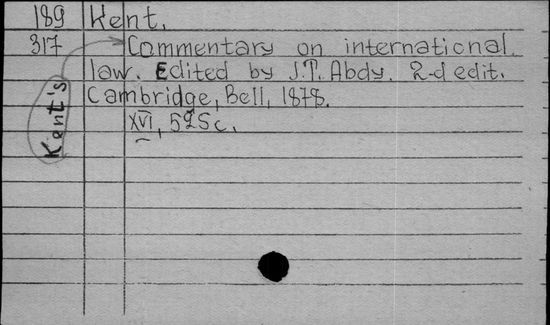 189 Kent.
317 Commentary on international
law. Edited by J.T. Abdy. 2-d edit.
Cambridge, Bell, 1878.
XVI, 525c.
Kent's